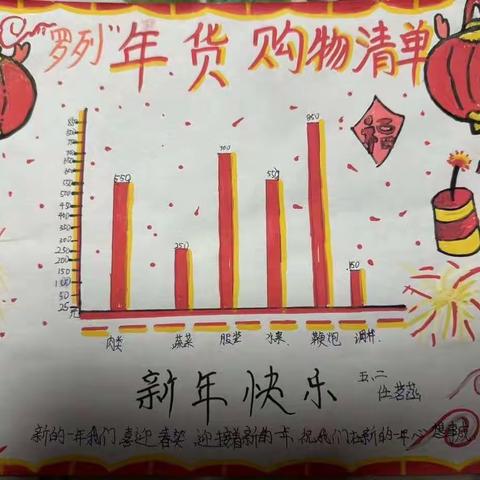 "罗列"年货购物清单
福
550
250
700
550
950
150
500
450
400
350
300
250
200
150
100
50
25
元
肉类 蔬菜 服装 水果 鞭炮 调料
新年快乐
五、二
新的一年我们喜迎春节,迎接着新的一年,祝我们在新的一年心想事成